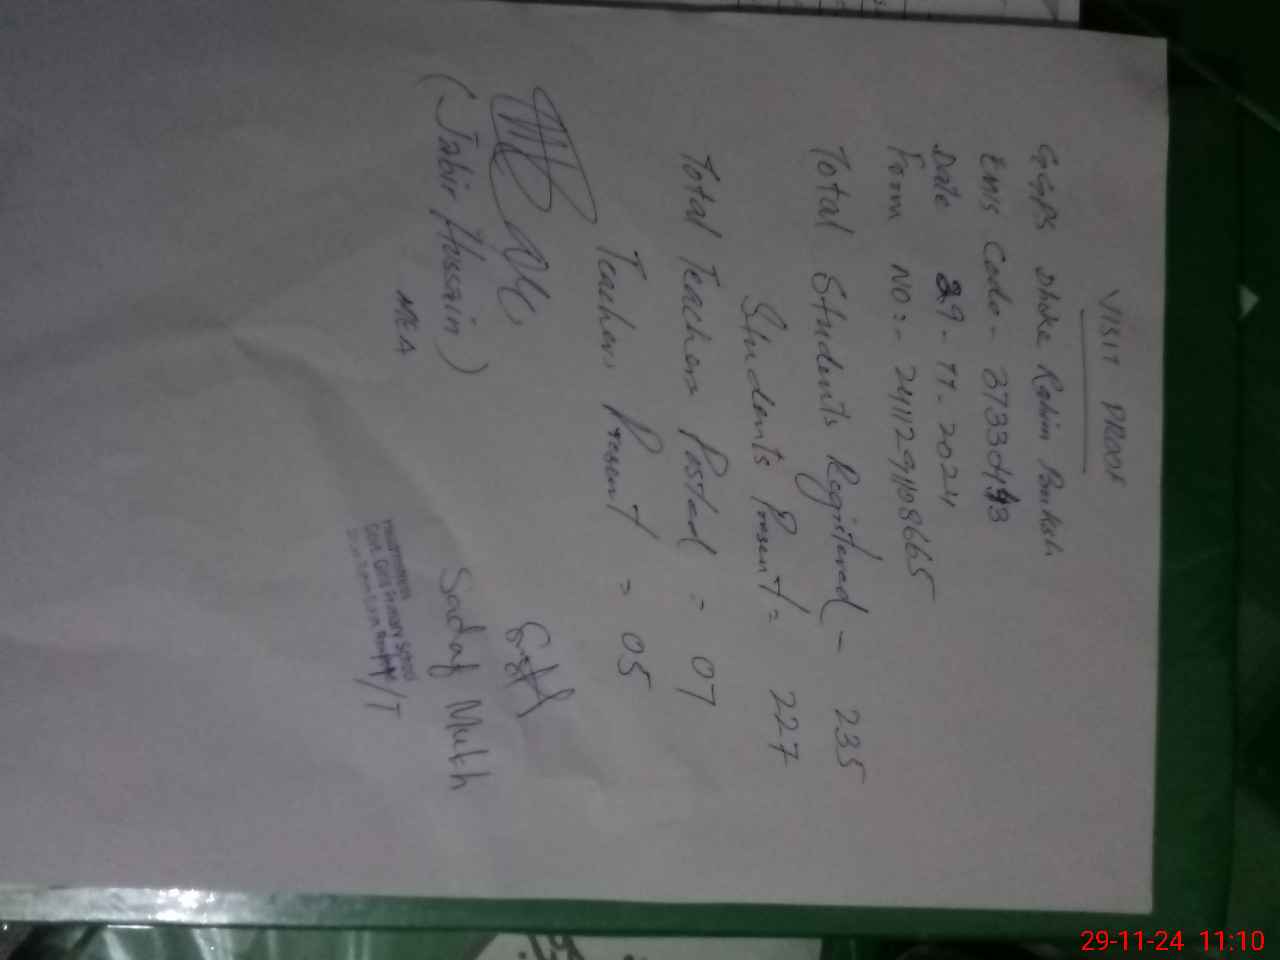 VISIT PROOF
GGPS Dhoke Rahim Buksh
EMIS Code - 37330443
Date 29-11-2024
Form NO:- 2411291108665
Total Students Registered - 235
Students Present = 227
Total Teachers Posted = 07
Teachers Present = 05
(Jabir Hussain)
MEA
Sadaf
Headmistress
Govt. Girls Primary School
29-11-24 11:10